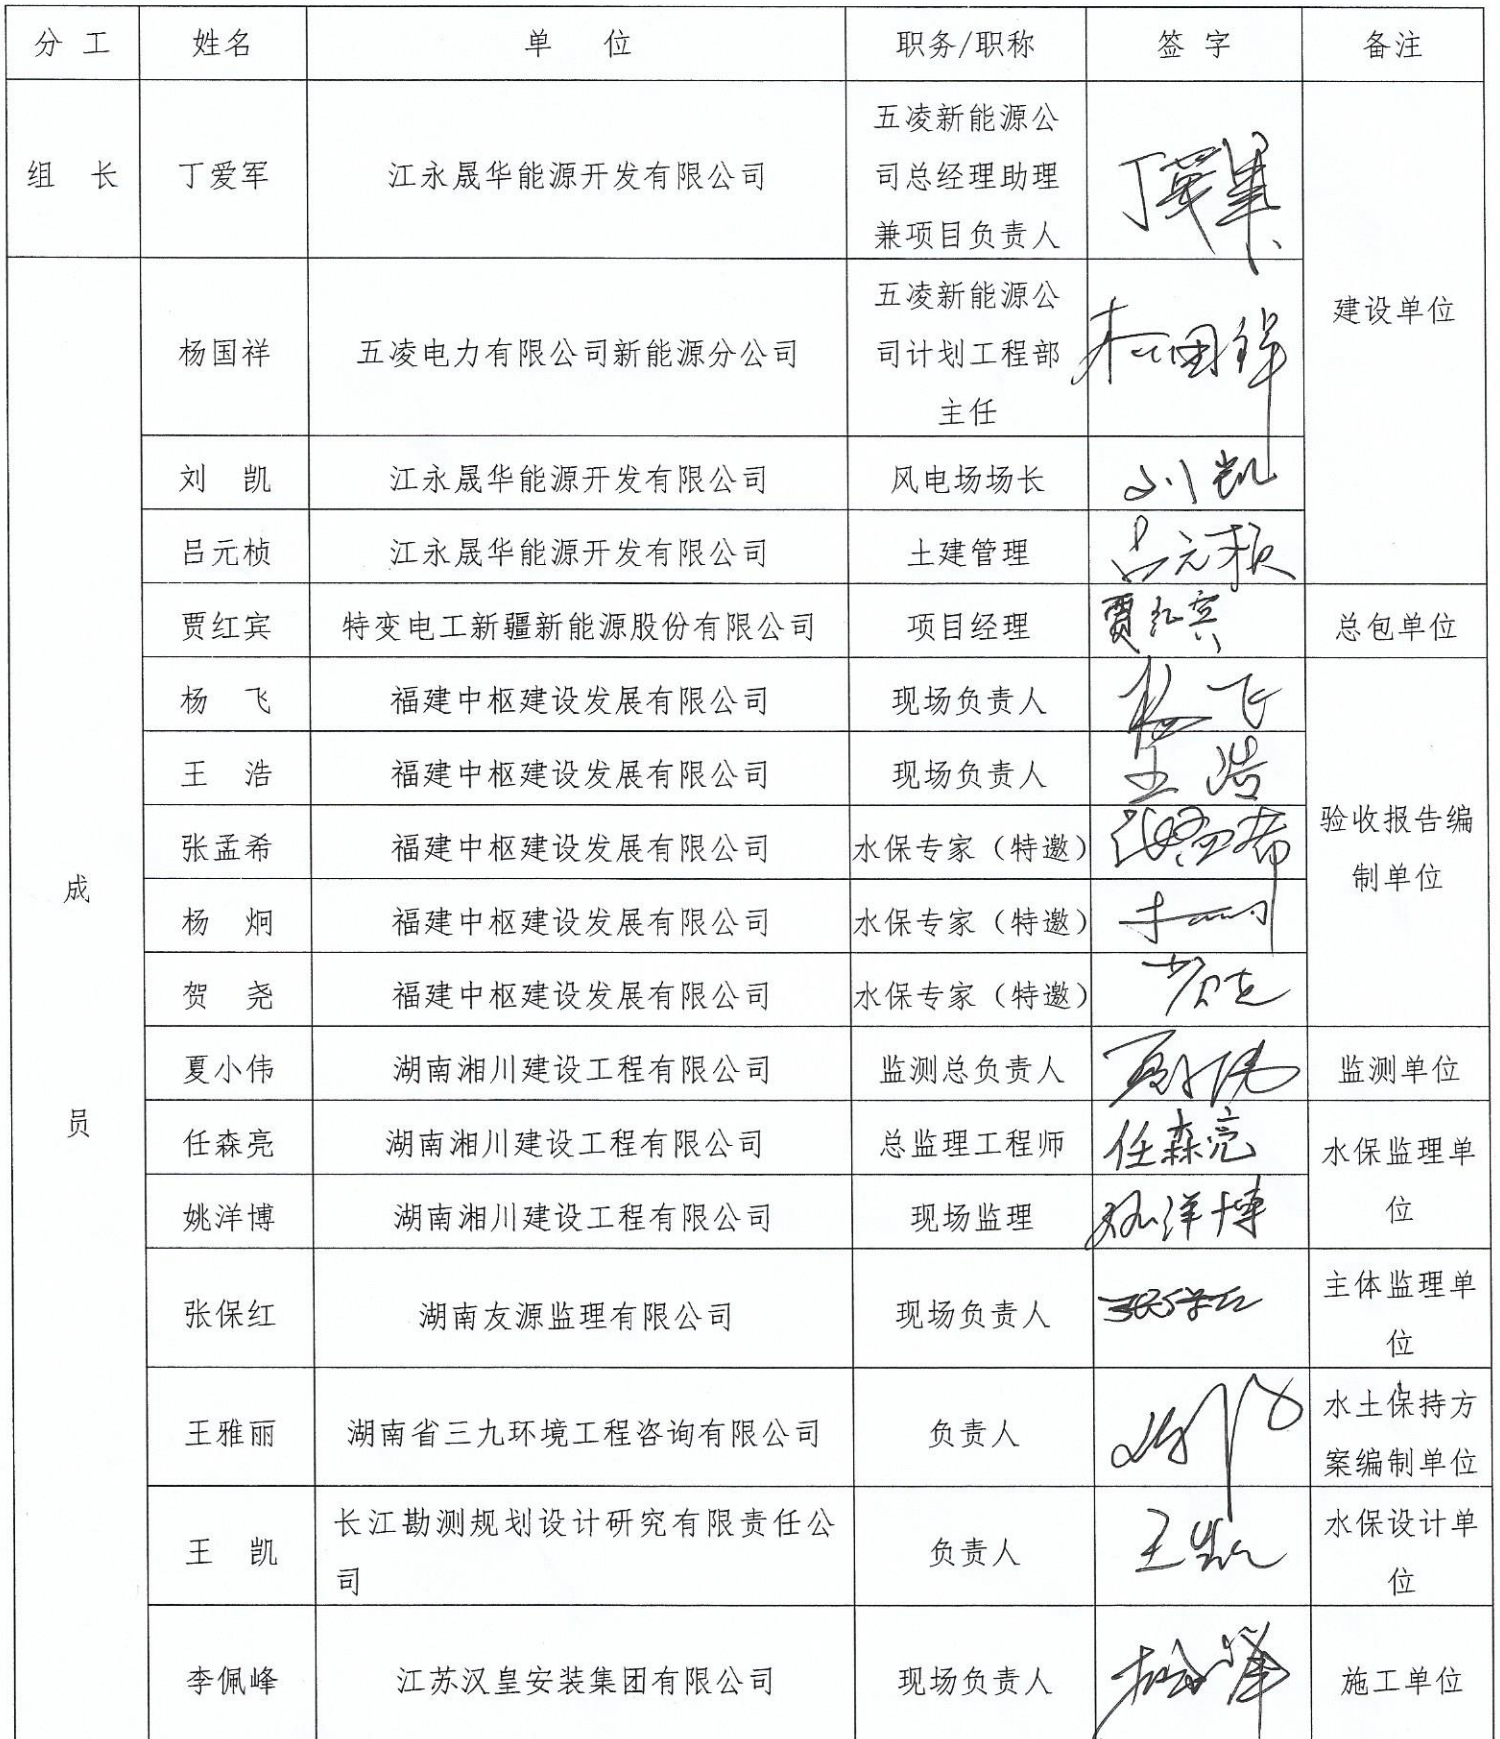 分 工 姓名 单 位 职务/职称 签 字 备注
组 长 丁爱军 江永晟华能源开发有限公司 五凌新能源公
司总经理助理
兼项目负责人 丁爱军 建设单位
成
员
杨国祥 五凌电力有限公司新能源分公司 五凌新能源公
司计划工程部
主任 杨国祥
刘 凯 江永晟华能源开发有限公司 风电场场长 刘凯
吕元桢 江永晟华能源开发有限公司 土建管理 吕元桢
贾红宾 特变电工新疆新能源股份有限公司 项目经理 贾红宾 总包单位
杨 飞 福建中枢建设发展有限公司 现场负责人 杨飞 验收报告编
制单位
王 浩 福建中枢建设发展有限公司 现场负责人 王浩
张孟希 福建中枢建设发展有限公司 水保专家（特邀） 张孟希
杨 炯 福建中枢建设发展有限公司 水保专家（特邀） 杨炯
贺 尧 福建中枢建设发展有限公司 水保专家（特邀） 贺尧
夏小伟 湖南湘川建设工程有限公司 监测总负责人 夏小伟 监测单位
任森亮 湖南湘川建设工程有限公司 总监理工程师 任森亮 水保监理单
位
姚洋博 湖南湘川建设工程有限公司 现场监理 姚洋博
张保红 湖南友源监理有限公司 现场负责人 主体监理单
位
王雅丽 湖南省三九环境工程咨询有限公司 负责人 水土保持方
案编制单位
王 凯 长江勘测规划设计研究有限责任公
司 负责人 王凯 水保设计单
位
李佩峰 江苏汉皇安装集团有限公司 现场负责人 施工单位